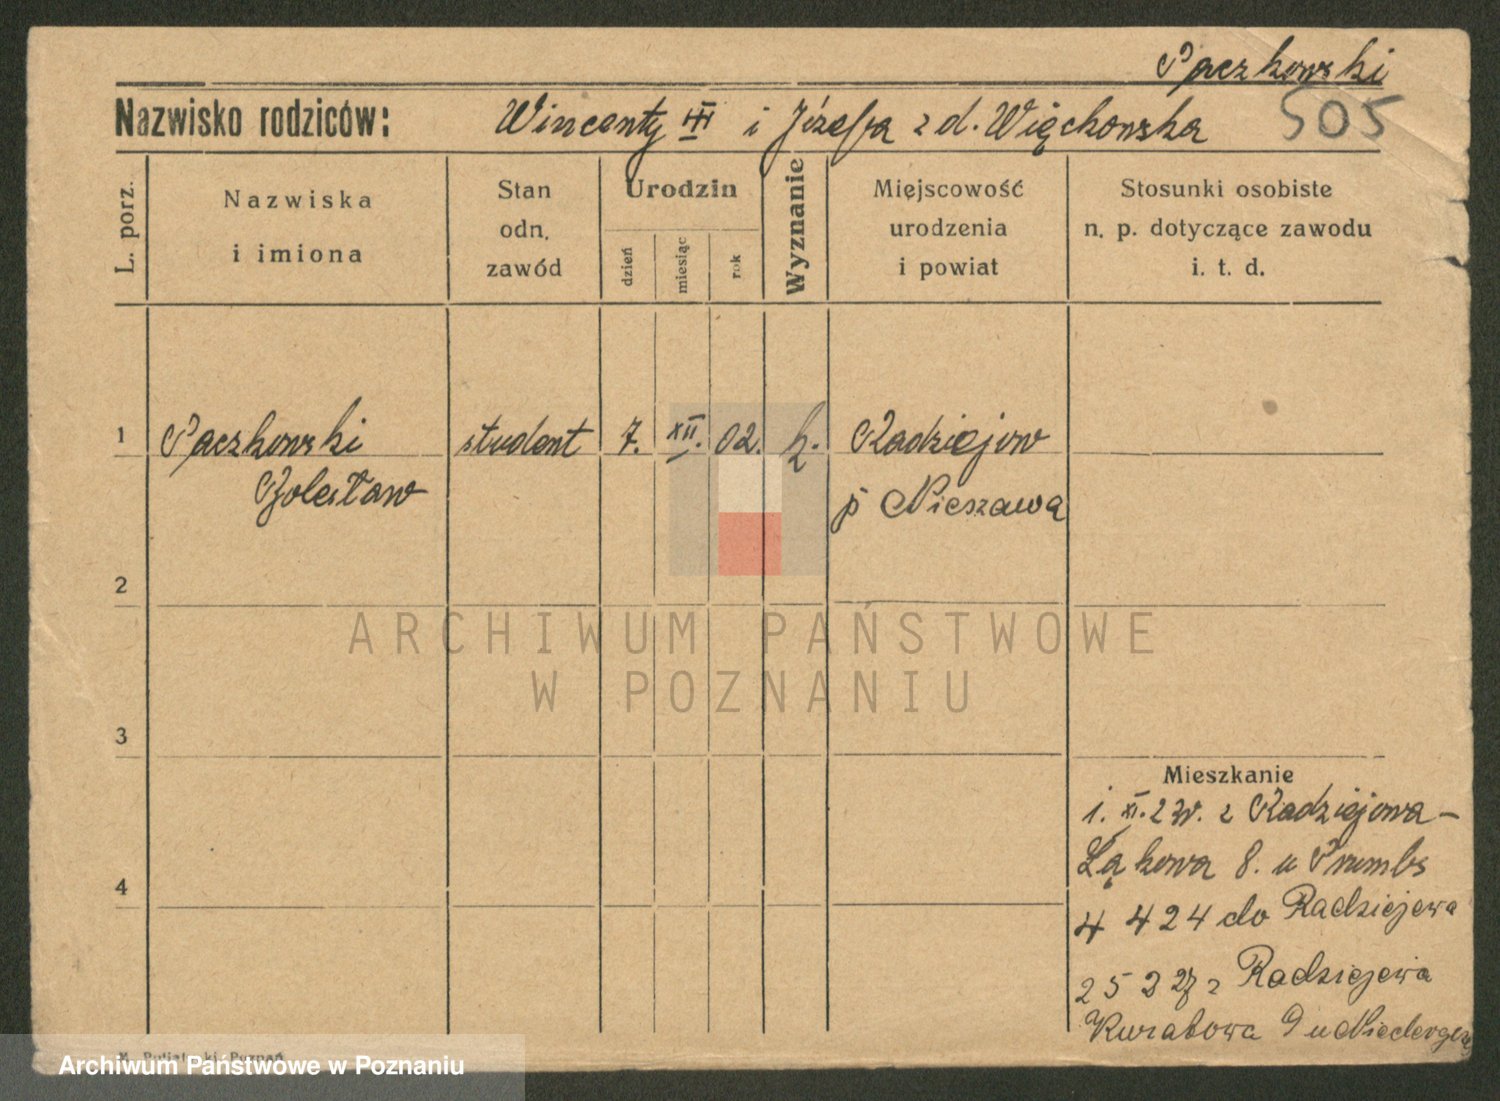 Paczkowski
Nazwisko rodziców: Wincenty III i Józefa z d. Więckowska 505
L. porz.
Nazwiska
i imiona
Stan
odn.
zawód
Urodzin
dzień
miesiąc
rok
Wyznanie
Miejscowość
urodzenia
i powiat
Stosunki osobiste
n. p. dotyczące zawodu
i. t. d.
1 Paczkowski student 7. XII. 02. k. Radziejow
Bolesław p Nieszawa
2
3
4
Mieszkanie
1. XI. 23r. z Radziejowa-
Łąkowa 8. u Prumbs
4 4 24 do Radziejewa
25 3 27 z Radziejewa
Kurabowa 9 u
ARCHIWUM PAŃSTWOWE
W POZNANIU
Poznań
Archiwum Państwowe w Poznaniu